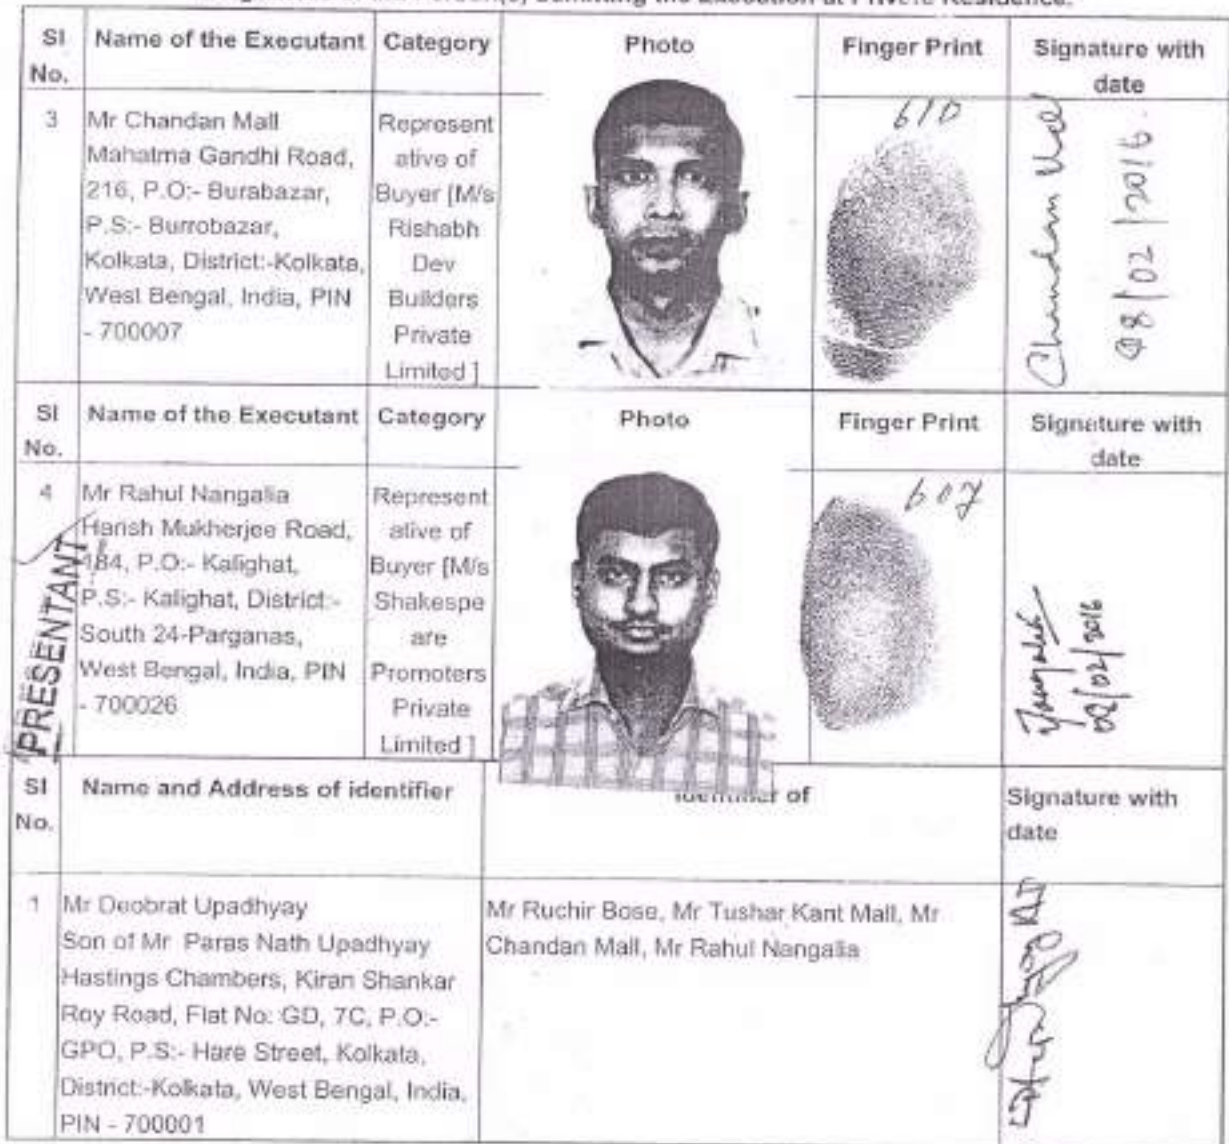 the Execution at Private Residence.
Sl No. Name of the Executant Category Photo Finger Print Signature with date
3
Mr Chandan Mall
Mahatma Gandhi Road,
216, P.O:- Burabazar,
P.S:- Burrobazar,
Kolkata, District:-Kolkata,
West Bengal, India, PIN
- 700007
Represent
ative of
Buyer [M/s
Rishabh
Dev
Builders
Private
Limited ]
610
Chandan Mall
08/02/2016
Sl No. Name of the Executant Category Photo Finger Print Signature with date
4
Mr Rahul Nangalia
Harish Mukherjee Road,
184, P.O:- Kalighat,
P.S:- Kalighat, District:-
South 24-Parganas,
West Bengal, India, PIN
- 700026
PRESENTANT
Represent
ative of
Buyer [M/s
Shakespe
are
Promoters
Private
Limited ]
607
08/02/2016
Sl No. Name and Address of identifier Identifier of Signature with date
1
Mr Deobrat Upadhyay
Son of Mr Paras Nath Upadhyay
Hastings Chambers, Kiran Shankar
Roy Road, Flat No: GD, 7C, P.O:-
GPO, P.S:- Hare Street, Kolkata,
District:-Kolkata, West Bengal, India,
PIN - 700001
Mr Ruchir Bose, Mr Tushar Kant Mall, Mr
Chandan Mall, Mr Rahul Nangalia